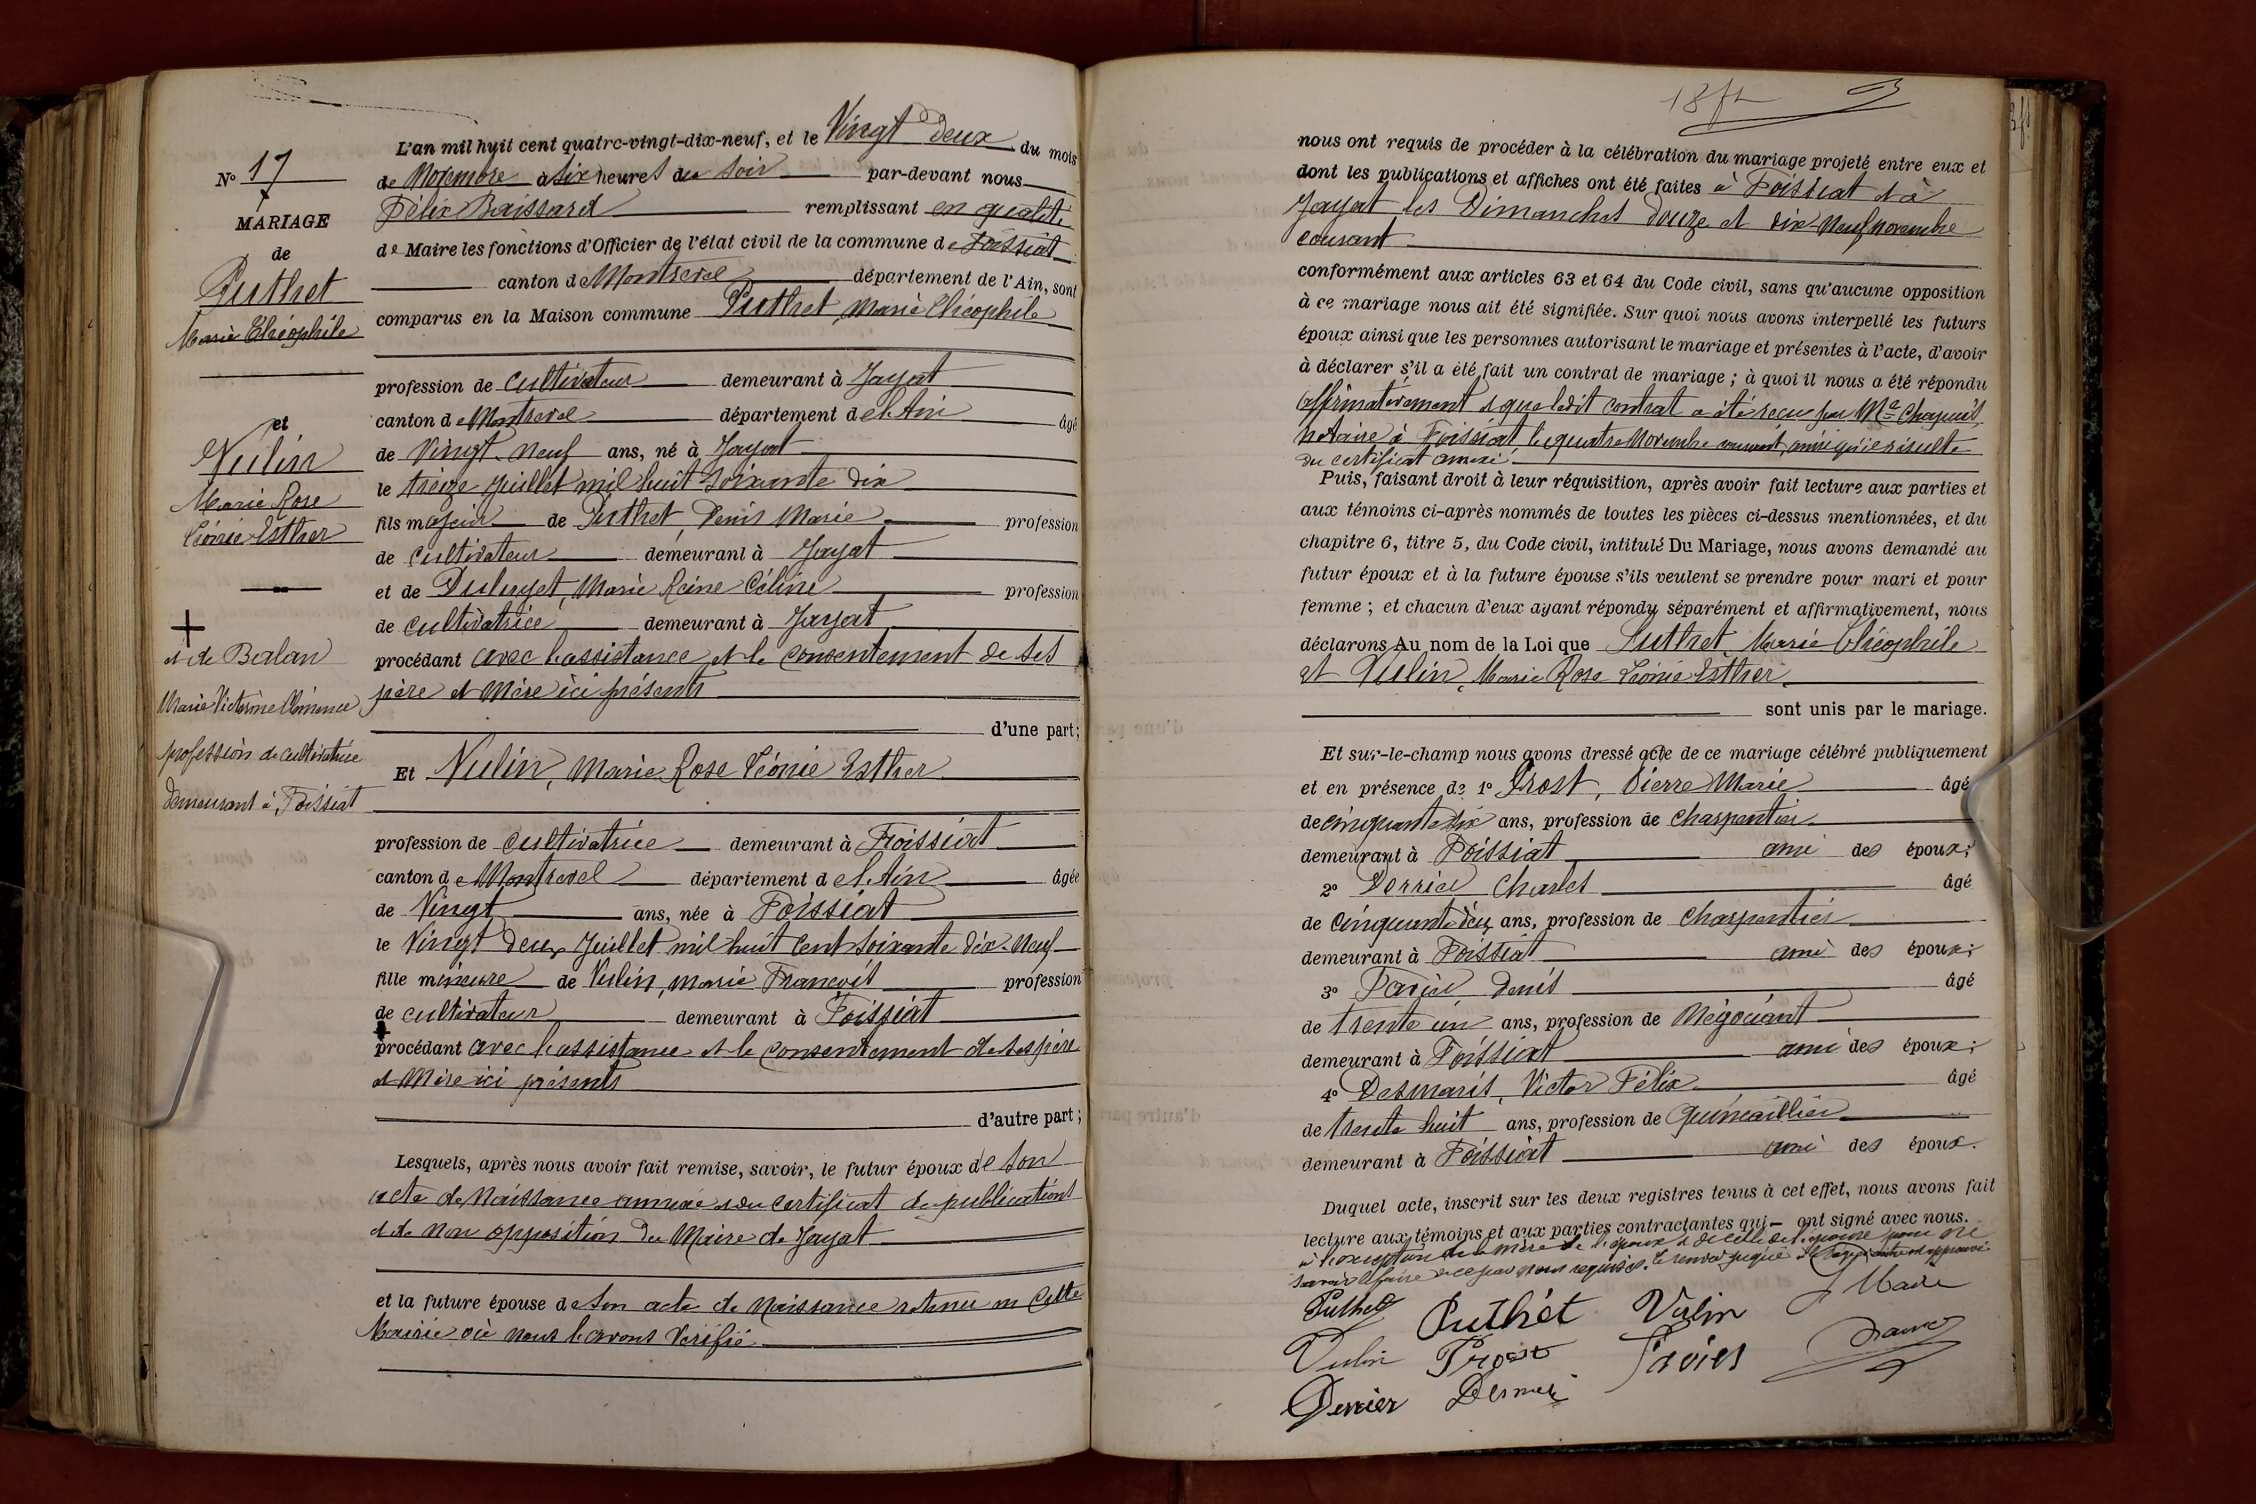 N° 17
MARIAGE
de
Puthet
Marie Théophile
et
Vulin
Marie Rose
Léonie Esther
+
et de Balan
Marie Victorine Clémence
profession de cultivatrice
demeurant à Foissiat
L'an mil huit cent quatre-vingt-dix-neuf, et le Vingt deux du mois
de Novembre à six heures du soir par-devant nous
Félix Baissard remplissant en qualité
de Maire les fonctions d'Officier de l'état civil de la commune de Foissiat
canton de Montrevel département de l'Ain, sont
comparus en la Maison commune Puthet Marie Théophile
profession de cultivateur demeurant à Jayat
canton de Montrevel département de l'Ain âgé
de Vingt-neuf ans, né à Jayat
le treize juillet mil huit soixante dix
fils majeur de Puthet, Denis Marie profession
de cultivateur demeurant à Jayat
et de Duluyet, Marie Reine Céline profession
de cultivatrice demeurant à Jayat
procédant avec l'assistance et le consentement de ses
père et mère ici présents
d'une part;
Et Vulin, Marie Rose Léonie Esther
profession de cultivatrice demeurant à Foissiat
canton de Montrevel département de l'Ain âgée
de Vingt ans, née à Foissiat
le Vingt deux Juillet mil huit cent soixante dix-neuf
fille mineure de Vulin, Marie François profession
de cultivateur demeurant à Foissiat
+
procédant avec l'assistance et le consentement de ses père
et mère ici présents
d'autre part;
Lesquels, après nous avoir fait remise, savoir, le futur époux de son
acte de Naissance annexé et du certificat de publications
et de non opposition du Maire de Jayat
et la future épouse de son acte de Naissance retenu en cette
Mairie où nous l'avons vérifié
18
nous ont requis de procéder à la célébration du mariage projeté entre eux et
dont les publications et affiches ont été faites à Foissiat et à
Jayat les Dimanches douze et dix-neuf novembre
courant
conformément aux articles 63 et 64 du Code civil, sans qu'aucune opposition
à ce mariage nous ait été signifiée. Sur quoi nous avons interpellé les futurs
époux ainsi que les personnes autorisant le mariage et présentes à l'acte, d'avoir
à déclarer s'il a été fait un contrat de mariage; à quoi il nous a été répondu
affirmativement et que ledit contrat a été reçu par Me Chapuis,
notaire à Foissiat le quatre Novembre courant, ainsi qu'il résulte
du certificat annexé
Puis, faisant droit à leur réquisition, après avoir fait lecture aux parties et
aux témoins ci-après nommés de toutes les pièces ci-dessus mentionnées, et du
chapitre 6, titre 5, du Code civil, intitulé Du Mariage, nous avons demandé au
futur époux et à la future épouse s'ils veulent se prendre pour mari et pour
femme; et chacun d'eux ayant répondu séparément et affirmativement, nous
déclarons Au nom de la Loi que Puthet, Marie Théophile
et Vulin, Marie Rose Léonie Esther
sont unis par le mariage.
Et sur-le-champ nous avons dressé acte de ce mariage célébré publiquement
et en présence de 1° Prost, Pierre Marie âgé
de cinquante six ans, profession de charpentier
demeurant à Foissiat ami des époux;
2° Perrier Charles âgé
de cinquante deux ans, profession de charpentier
demeurant à Foissiat ami des époux;
3° Favier, Denis âgé
de trente un ans, profession de Négociant
demeurant à Foissiat ami des époux;
4° Desmaris, Victor Félix âgé
de trente huit ans, profession de quincaillier
demeurant à Foissiat ami des époux.
Duquel acte, inscrit sur les deux registres tenus à cet effet, nous avons fait
lecture aux témoins et aux parties contractantes qui ont signé avec nous.
à l'exception de la mère de l'époux et de celle de l'épouse pour ne
savoir le faire de ce par nous requises. le renvoi approuvé
Puthet Puthet Vulin
Vulin Prost Favier
Perrier